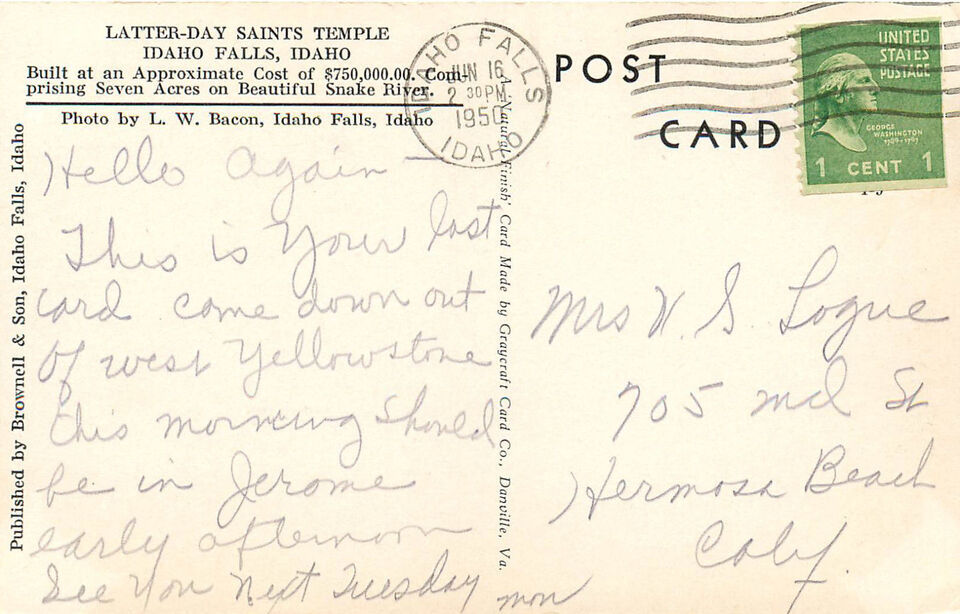 LATTER-DAY SAINTS TEMPLE
IDAHO FALLS, IDAHO
Built at an Approximate Cost of $750,000.00. Com-
prising Seven Acres on Beautiful Snake River.
Photo by L. W. Bacon, Idaho Falls, Idaho
Hello Again —
This is Your last
card came down out
of west Yellowstone
this morning Should
be in Jerome
early afternoon
See You Next Tuesday
mon
Published by Brownell & Son, Idaho Falls, Idaho
A 'Natural Finish' Card Made by Graycraft Card Co., Danville, Va.
IDAHO FALLS
JUN 16
2 30 PM
1950
IDAHO
POST
CARD
UNITED
STATES
POSTAGE
GEORGE
WASHINGTON
1789-1797
1 CENT 1
Mrs W. S. Logue
705 St
Hermosa Beach
Calif